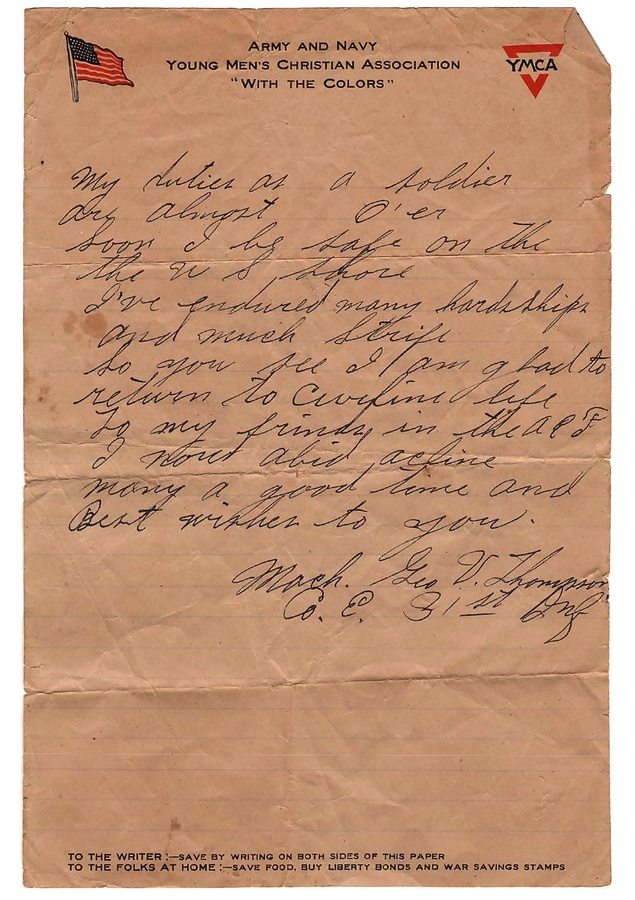 ARMY AND NAVY
YOUNG MEN'S CHRISTIAN ASSOCIATION
"WITH THE COLORS"
YMCA
My duties as a soldier
are almost O'er
Soon I be safe on the
the U S, shore
I've endured many hardships
and much strife
So you see I am glad to
return to life
To my in the A E F
I now
many a good time and
Best wishes to you.
Mach. Geo V. Thompson
Co. E. 31st Inf
TO THE WRITER:—SAVE BY WRITING ON BOTH SIDES OF THIS PAPER
TO THE FOLKS AT HOME:—SAVE FOOD, BUY LIBERTY BONDS AND WAR SAVINGS STAMPS